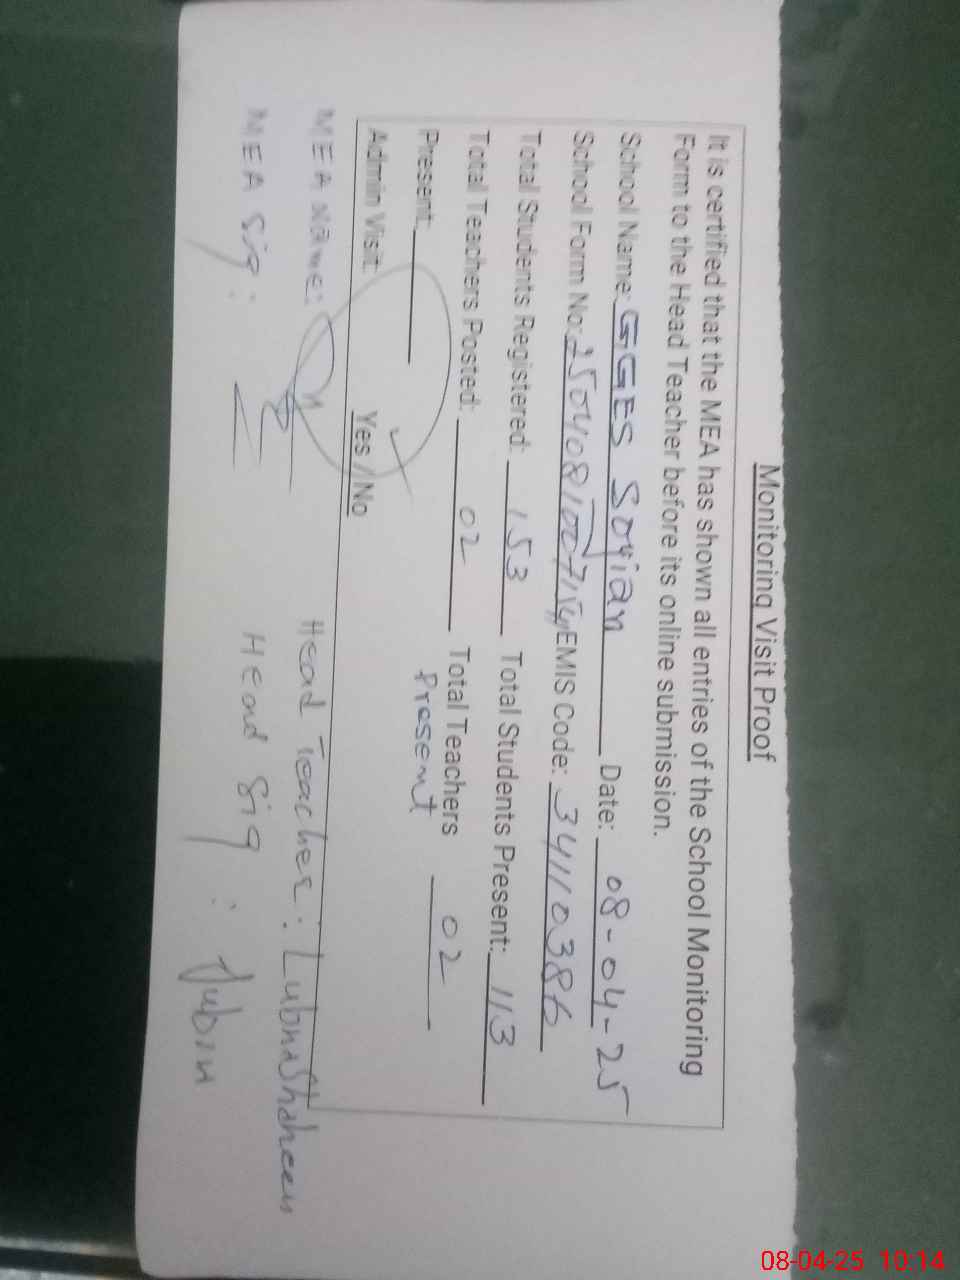 Monitoring Visit Proof
It is certified that the MEA has shown all entries of the School Monitoring
Form to the Head Teacher before its online submission.
School Name: GGES Soyian Date: 08-04-25
School Form No: EMIS Code: 34110386
Total Students Registered: 153 Total Students Present: 113
Total Teachers Posted: 02 Total Teachers 02
Present
Present:
Admin Visit: Yes / No
MEA Name: Head Teacher: Lubna Shaheen
MEA Sig: Head Sig:
08-04-25 10:14